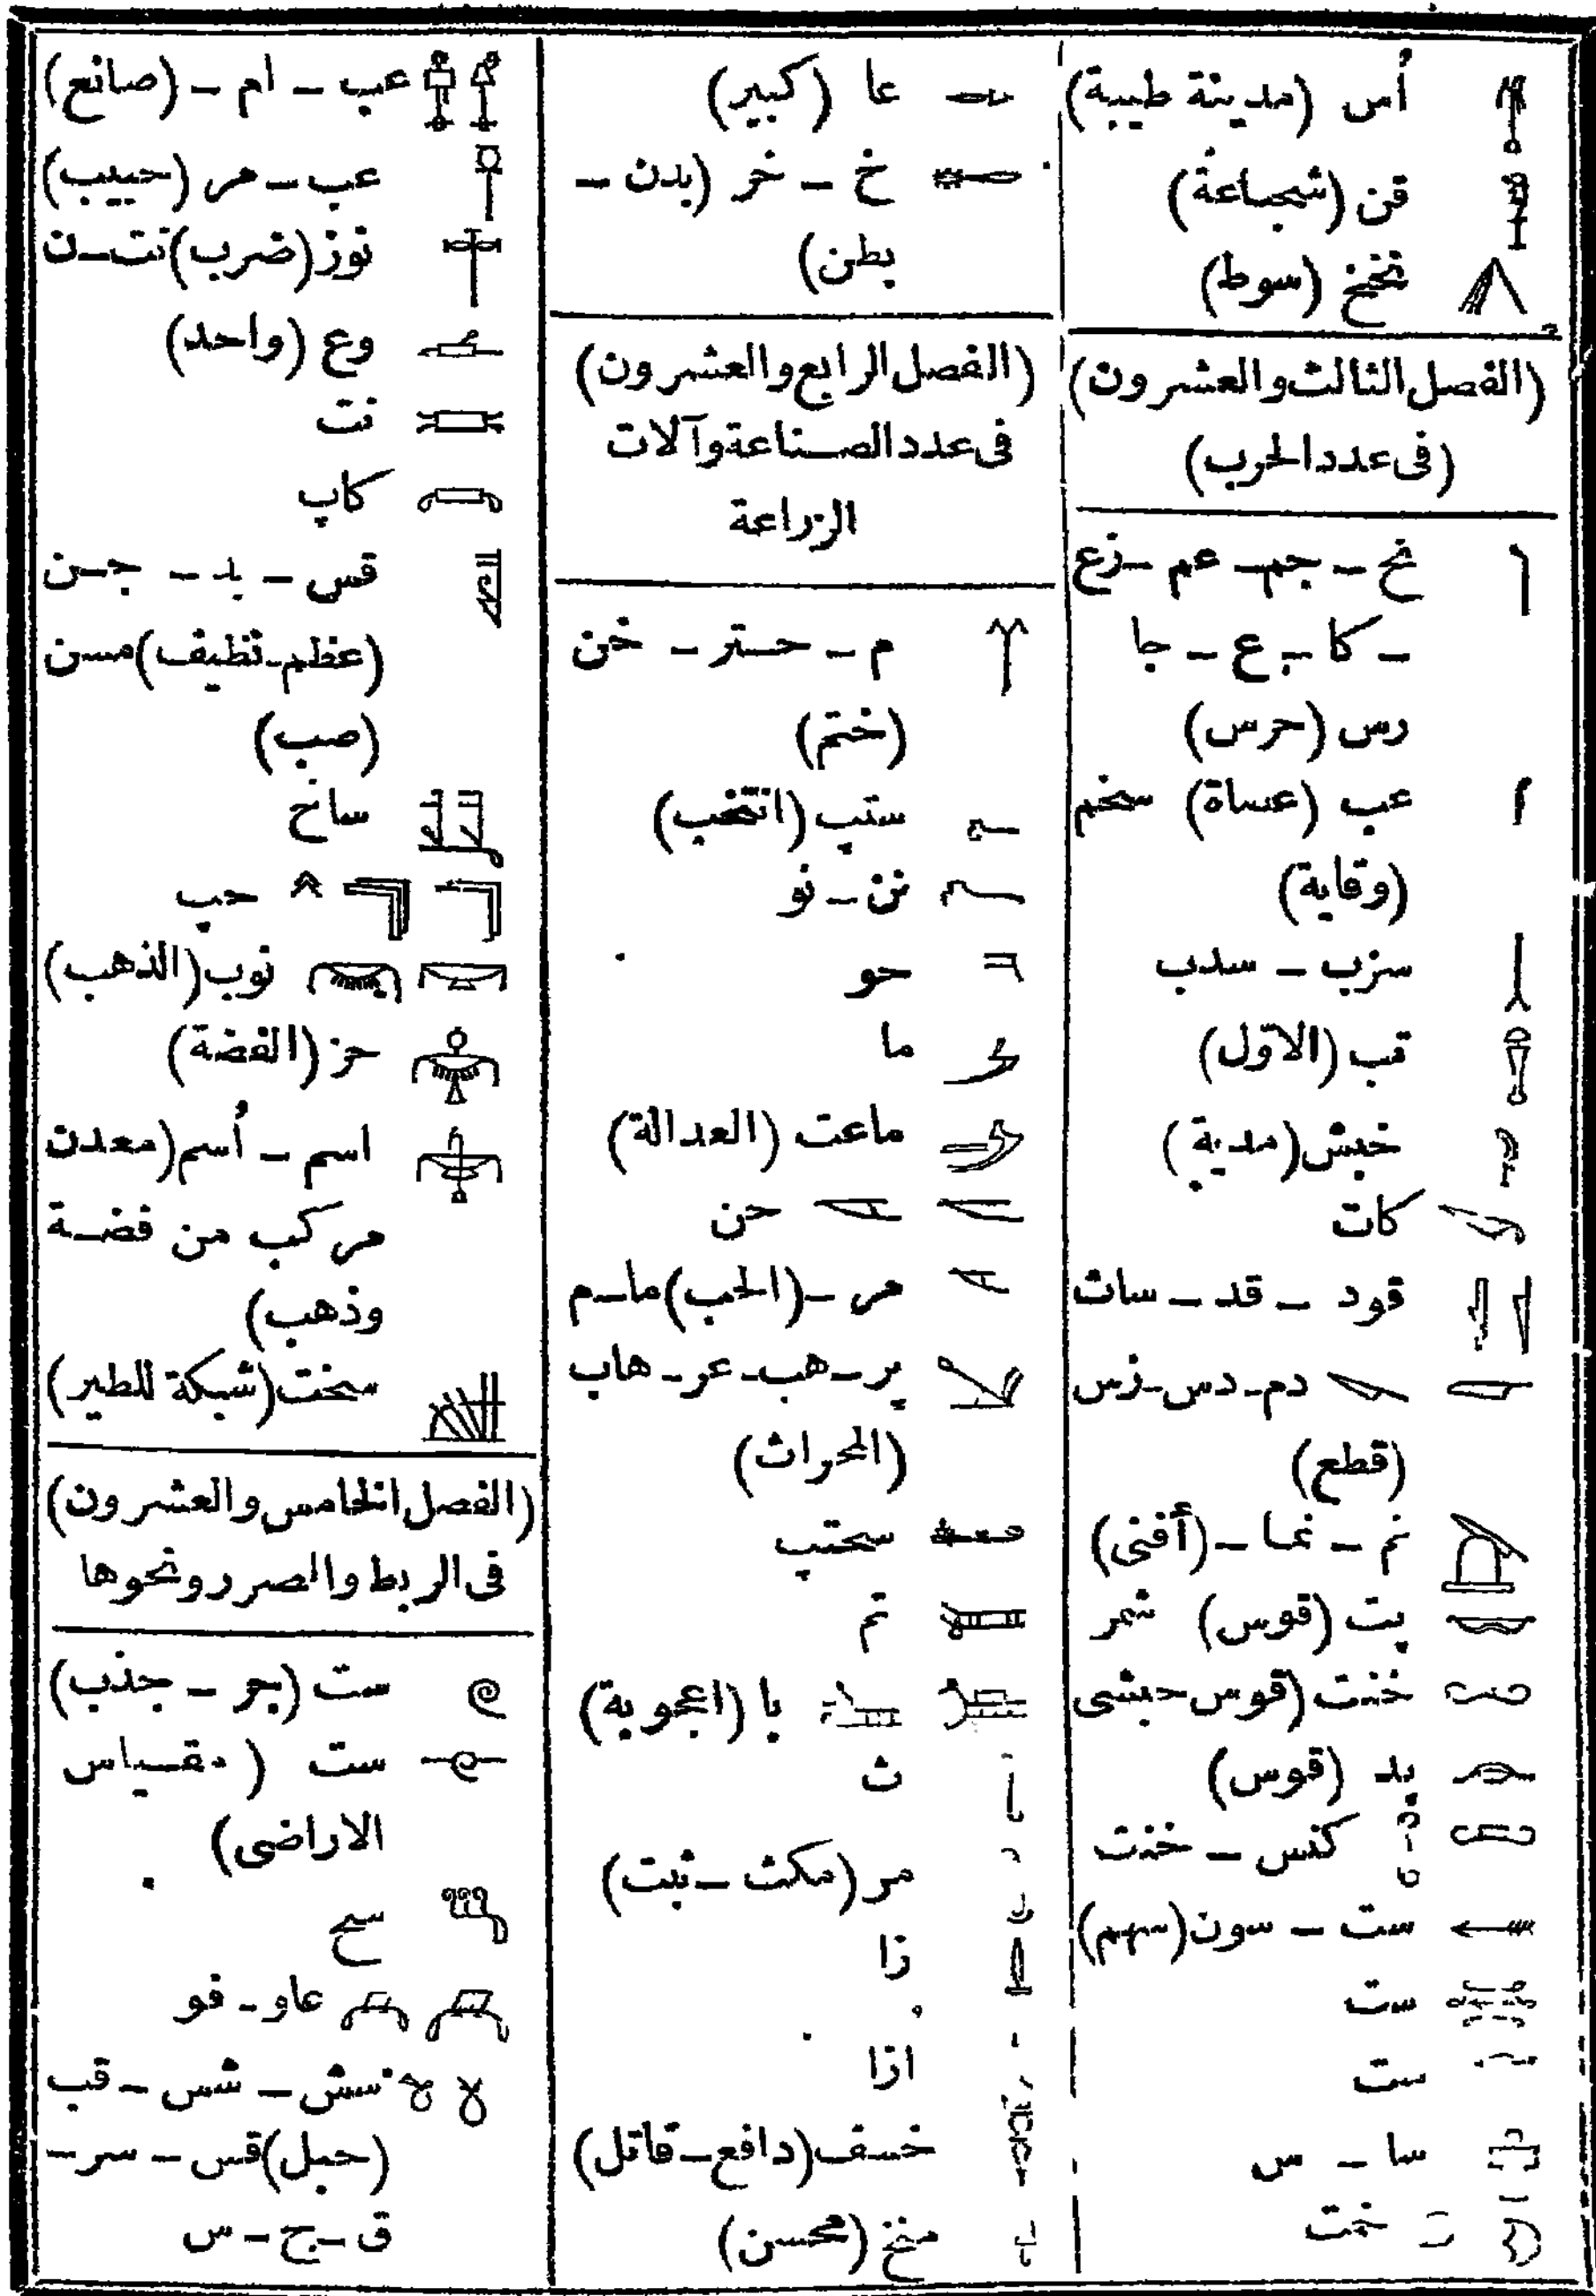 أُس (مدينة طيبة)
قن (شجاعة)
نخخ (سوط)
(الفصل الثالث والعشرون)
(فى عدد الحرب)
نح - جم - عم - زع
- كا - ع - جا
رس (حرس)
عب (عساة) سخم
(وقاية)
سزب - سدب
تب (الاوّل)
خبش (مدية)
كات
قود - قد - سات
دم - دس - زس
(قطع)
نم - نما - (أفنى)
پت (قوس) شمر
خنت (قوس حبشى
پد (قوس)
كنس - خنت
ست - سون (سهم)
ست
ست
سا - س
خت
عا (كبير)
خ - خر (بدن -
بطن)
(الفصل الرابع والعشرون)
فى عدد الصناعة وآلات
الزراعة
م - حستر - خن
(ختم)
ستپ (انتخب)
نن - نو
حو
ما
ماعت (العدالة)
حن
مر - (الحب) ما - م
پر - هب - عر - هاب
(المحراث)
سحتپ
تم
با (اعجوبة)
ث
مر (مكث - ثبت)
زا
ازا
خسف (دافع - قاتل)
منخ (محسن)
عب - ام - (صانع)
عب - مر (حبيب)
نوز (ضرب) نت - ن
وع (واحد)
نت
كاپ
قس - يد - جن
(عظم - نظيف) مسن
(صب)
ساخ
حپ
نوب (الذهب)
حز (الفضة)
اسم - أُسم (معدن
مركب من فضة
وذهب)
سخت (شبكة للطير)
(الفصل الخامس والعشرون)
فى الربط والصرر ونحوها
ست (جر - جذب)
ست (مقياس
الاراضى)
سح
عاو - فو
سش - شس - قب
(حبل) قس - سر -
ق - ج - س